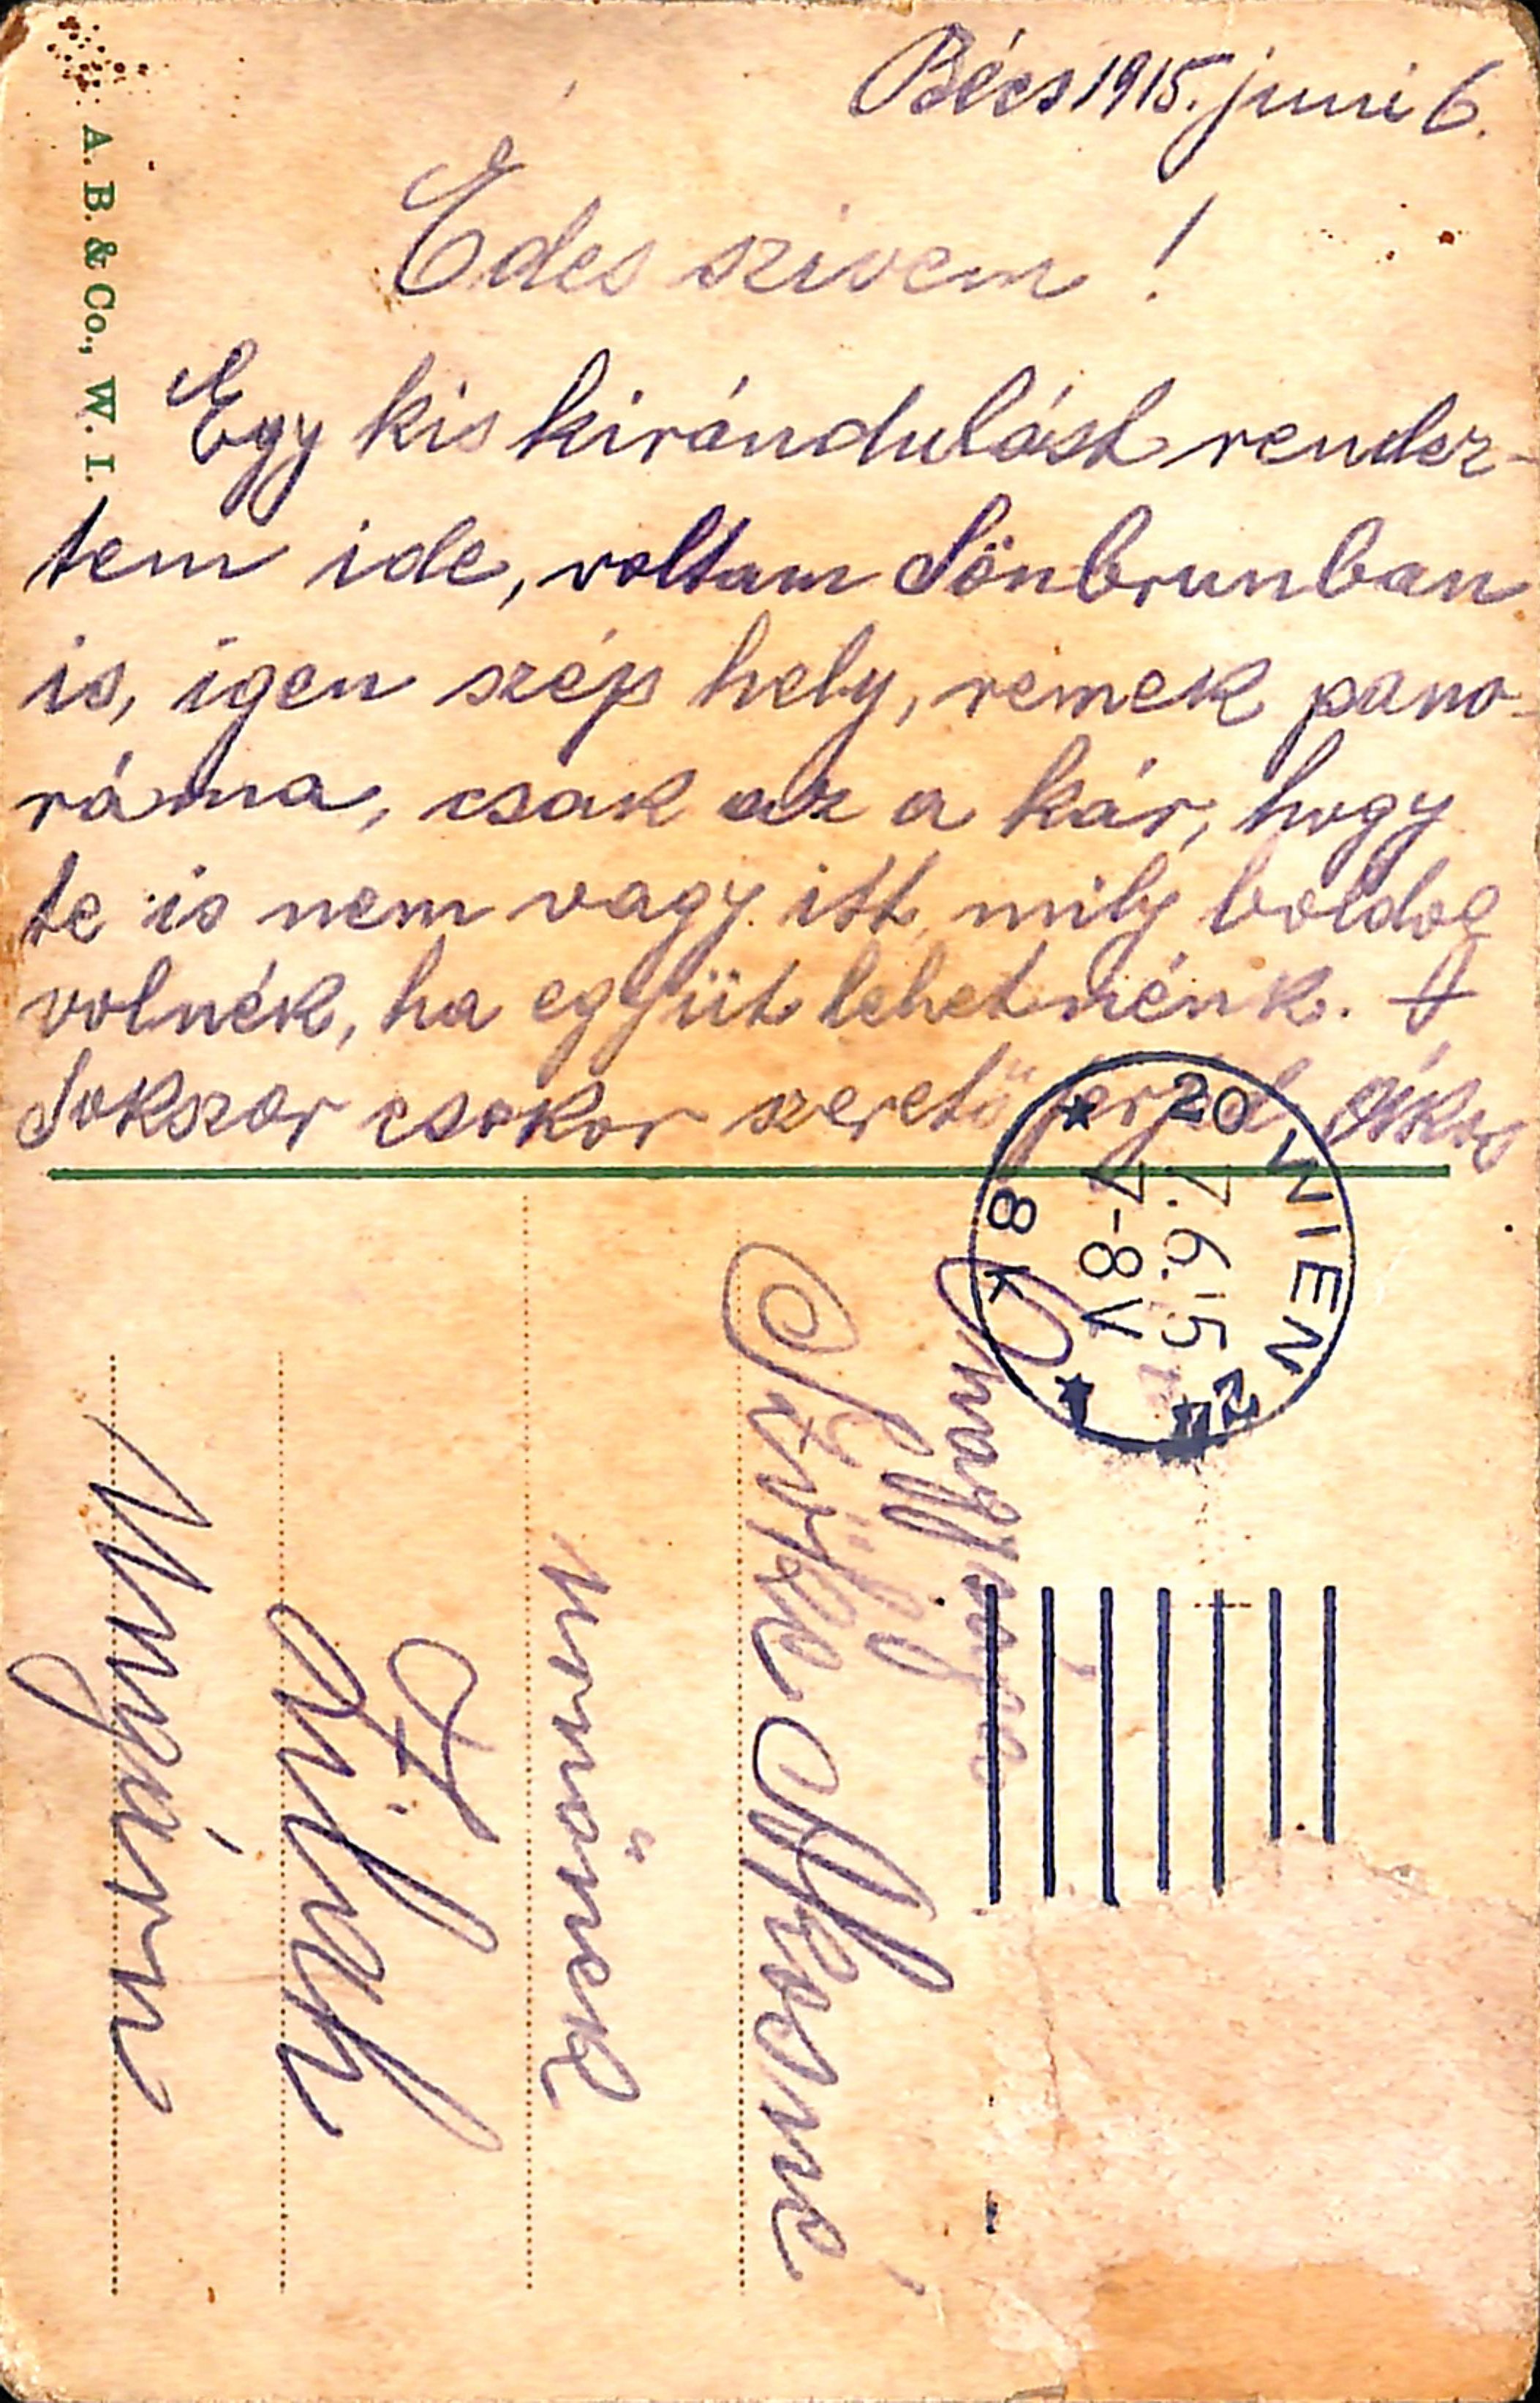 Bécs 1915. juni 6.
Edes szivem!
Egy kis kirándulást rendez-
tem ide, voltam Sönbrunban
is, igen szép hely, remek pano-
ráma, csak az a kár, hogy
te is nem vagy itt, mily boldog
volnék, ha együt lehetnénk.
Sokszor csokor szerető férjed Ákos
A. B. & Co., W. I.
20 WIEN
7.6.15
7-8V
8k
Szőke Ákosné
urnőnek
Zilah
Ungarn